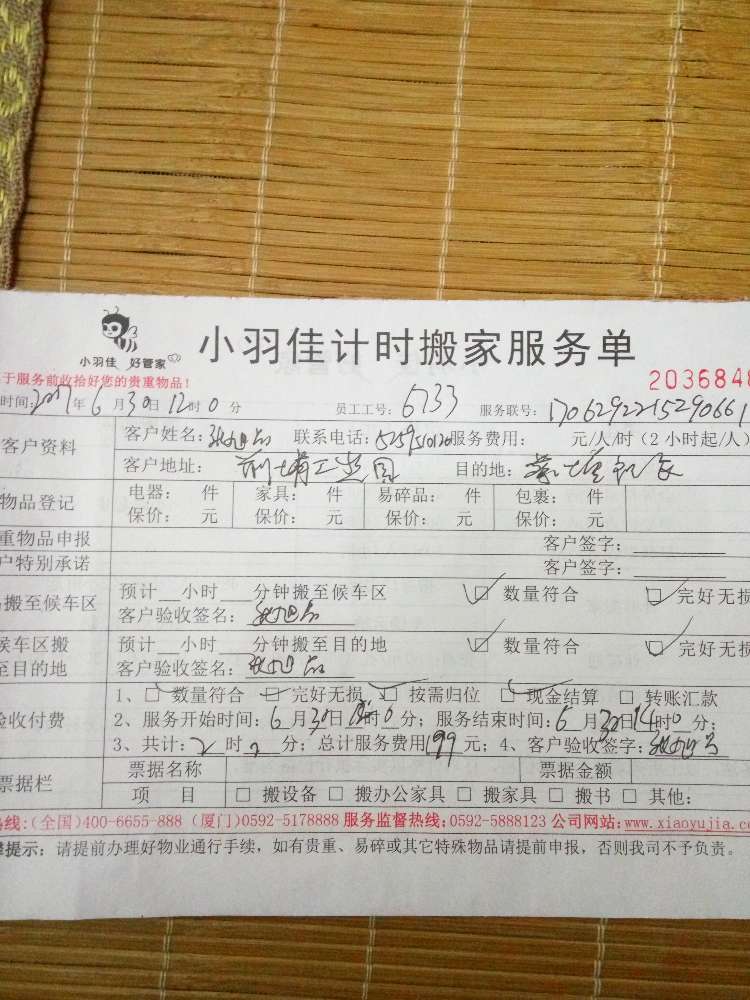 小羽佳 好管家
小羽佳计时搬家服务单
于服务前收拾好您的贵重物品!
2036848
时间:2017年6月30日12时0分 员工工号:6733 服务联号:1706292215290661
客户资料
客户姓名: 联系电话: 服务费用: 元/人/时(2小时起/人)
客户地址: 工业园 目的地:
物品登记
电器: 件 家具: 件 易碎品: 件 包裹: 件
保价: 元 保价: 元 保价: 元 保价: 元
重物品申报 客户签字:
户特别承诺 客户签字:
搬至候车区
预计__小时___分钟搬至候车区 数量符合 完好无损
客户验收签名:
候车区搬
至目的地
预计__小时___分钟搬至目的地 数量符合 完好无损
客户验收签名:
验收付费
1、□ 数量符合 □ 完好无损 □ 按需归位 □ 现金结算 □ 转账汇款
2、服务开始时间:6月30日 时0分;服务结束时间:6月30日14时0分;
3、共计:2时 分;总计服务费用199元;4、客户验收签字:
票据栏
票据名称 票据金额
项 目 □ 搬设备 □ 搬办公家具 □ 搬家具 □ 搬书 □ 其他:
热线:(全国)400-6655-888 (厦门)0592-5178888 服务监督热线:0592-5888123 公司网站:www.xiaoyujia.c
提示:请提前办理好物业通行手续,如有贵重、易碎或其它特殊物品请提前申报,否则我司不予负责。